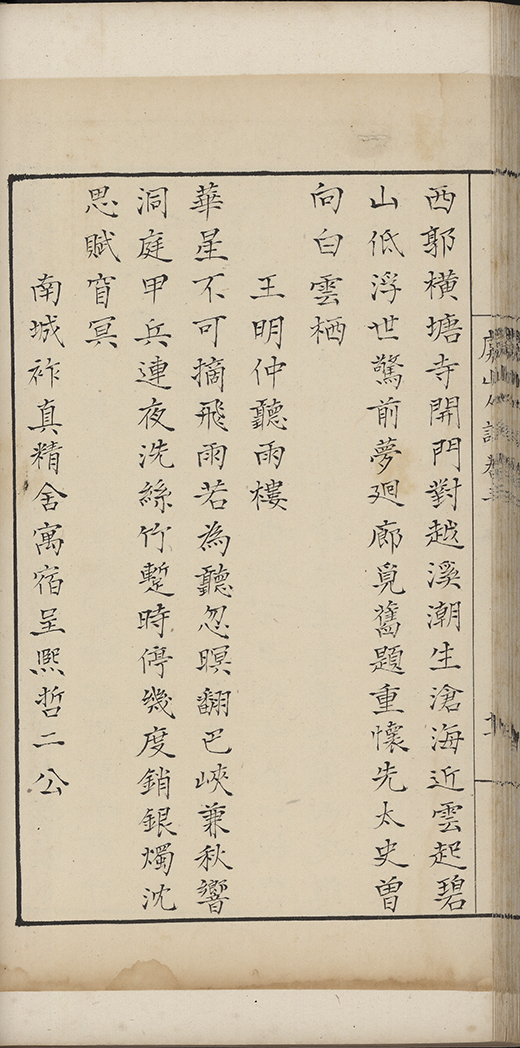 西郭橫塘寺開門對越溪潮生滄海近雲起碧
山低浮世驚前夢廻廊覓舊題重懷先太史曾
向白雲栖
王明仲聽雨樓
華星不可摘飛雨若為聽忽暝翻巴峽兼秋響
洞庭甲兵連夜洗絲竹蹔時停幾度銷銀燭沈
思賦窅冥
南城祚真精舍寓宿呈熙哲二公